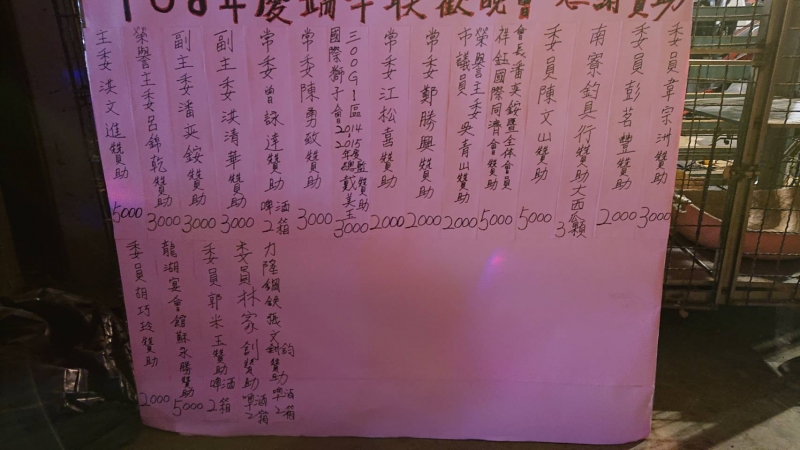 108年慶端午聯歡晚會 感謝贊助
委員韋宗洲贊助 3000
委員彭茗豐贊助 2000
南寮釣具行贊助大西瓜3顆
委員陳文山贊助 5000
會長潘英銨暨全体會員
祥鈺國際同濟會贊助 5000
榮譽主委
市議員 吳青山贊助 2000
常委鄭勝興贊助 2000
常委江松喜贊助 2000
300G1區2014 2015年度
國際獅子會 總監戴美玉贊助 3000
常委陳勇敢贊助 3000
常委曾詠達贊助 啤酒2箱
副主委洪清華贊助 3000
副主委潘英銨贊助 3000
榮譽主委呂錦乾贊助 3000
主委洪文進贊助 5000
力隆鋼鐵張文鈞贊助 啤酒2箱
委員林家創贊助 啤酒2箱
委員郭米玉贊助 啤酒2箱
龍湖宴會館蘇永勝贊助 5000
委員胡巧玲贊助 2000